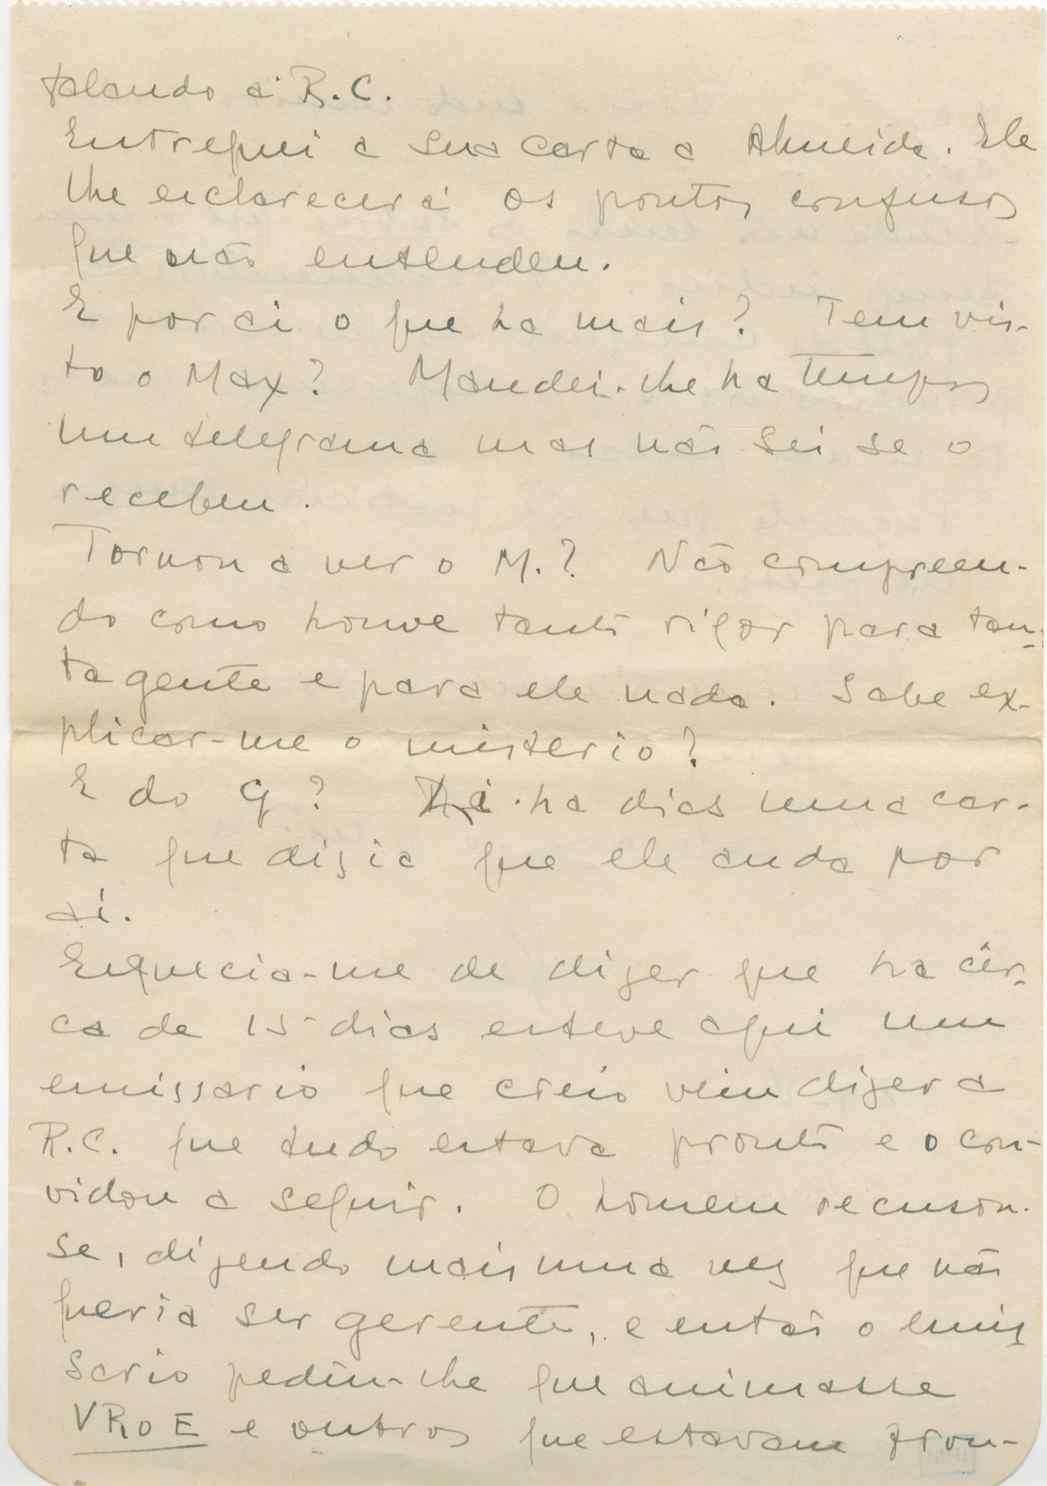 falando a R.C.
Entreguei a sua carta a Almeida. Ele
lhe esclarecerá os pontos confusos
que não entendeu.
E por ai o que ha mais? Tem vis-
to o Max? Mandei-lhe ha tempos
um telegrama mas não sei se o
recebeu.
Tornou a ver o M.? Não compreen-
do como houve tanto rigor para tan-
ta gente e para ele nada. Sabe ex-
plicar-me o misterio?
E do G? ha dias uma car-
ta que dizia que ele anda por
ai.
Esquecia-me de dizer que ha cêr-
ca de 15 dias esteve aqui um
emissario que creio veiu dizer a
R.C. que tudo estava pronto e o con-
vidou a seguir. O homem recusou-
se, dizendo mais uma vez que não
queria ser gerente, e então o emis
sario pediu-lhe que animasse
VRoE e outros que estavam pron-